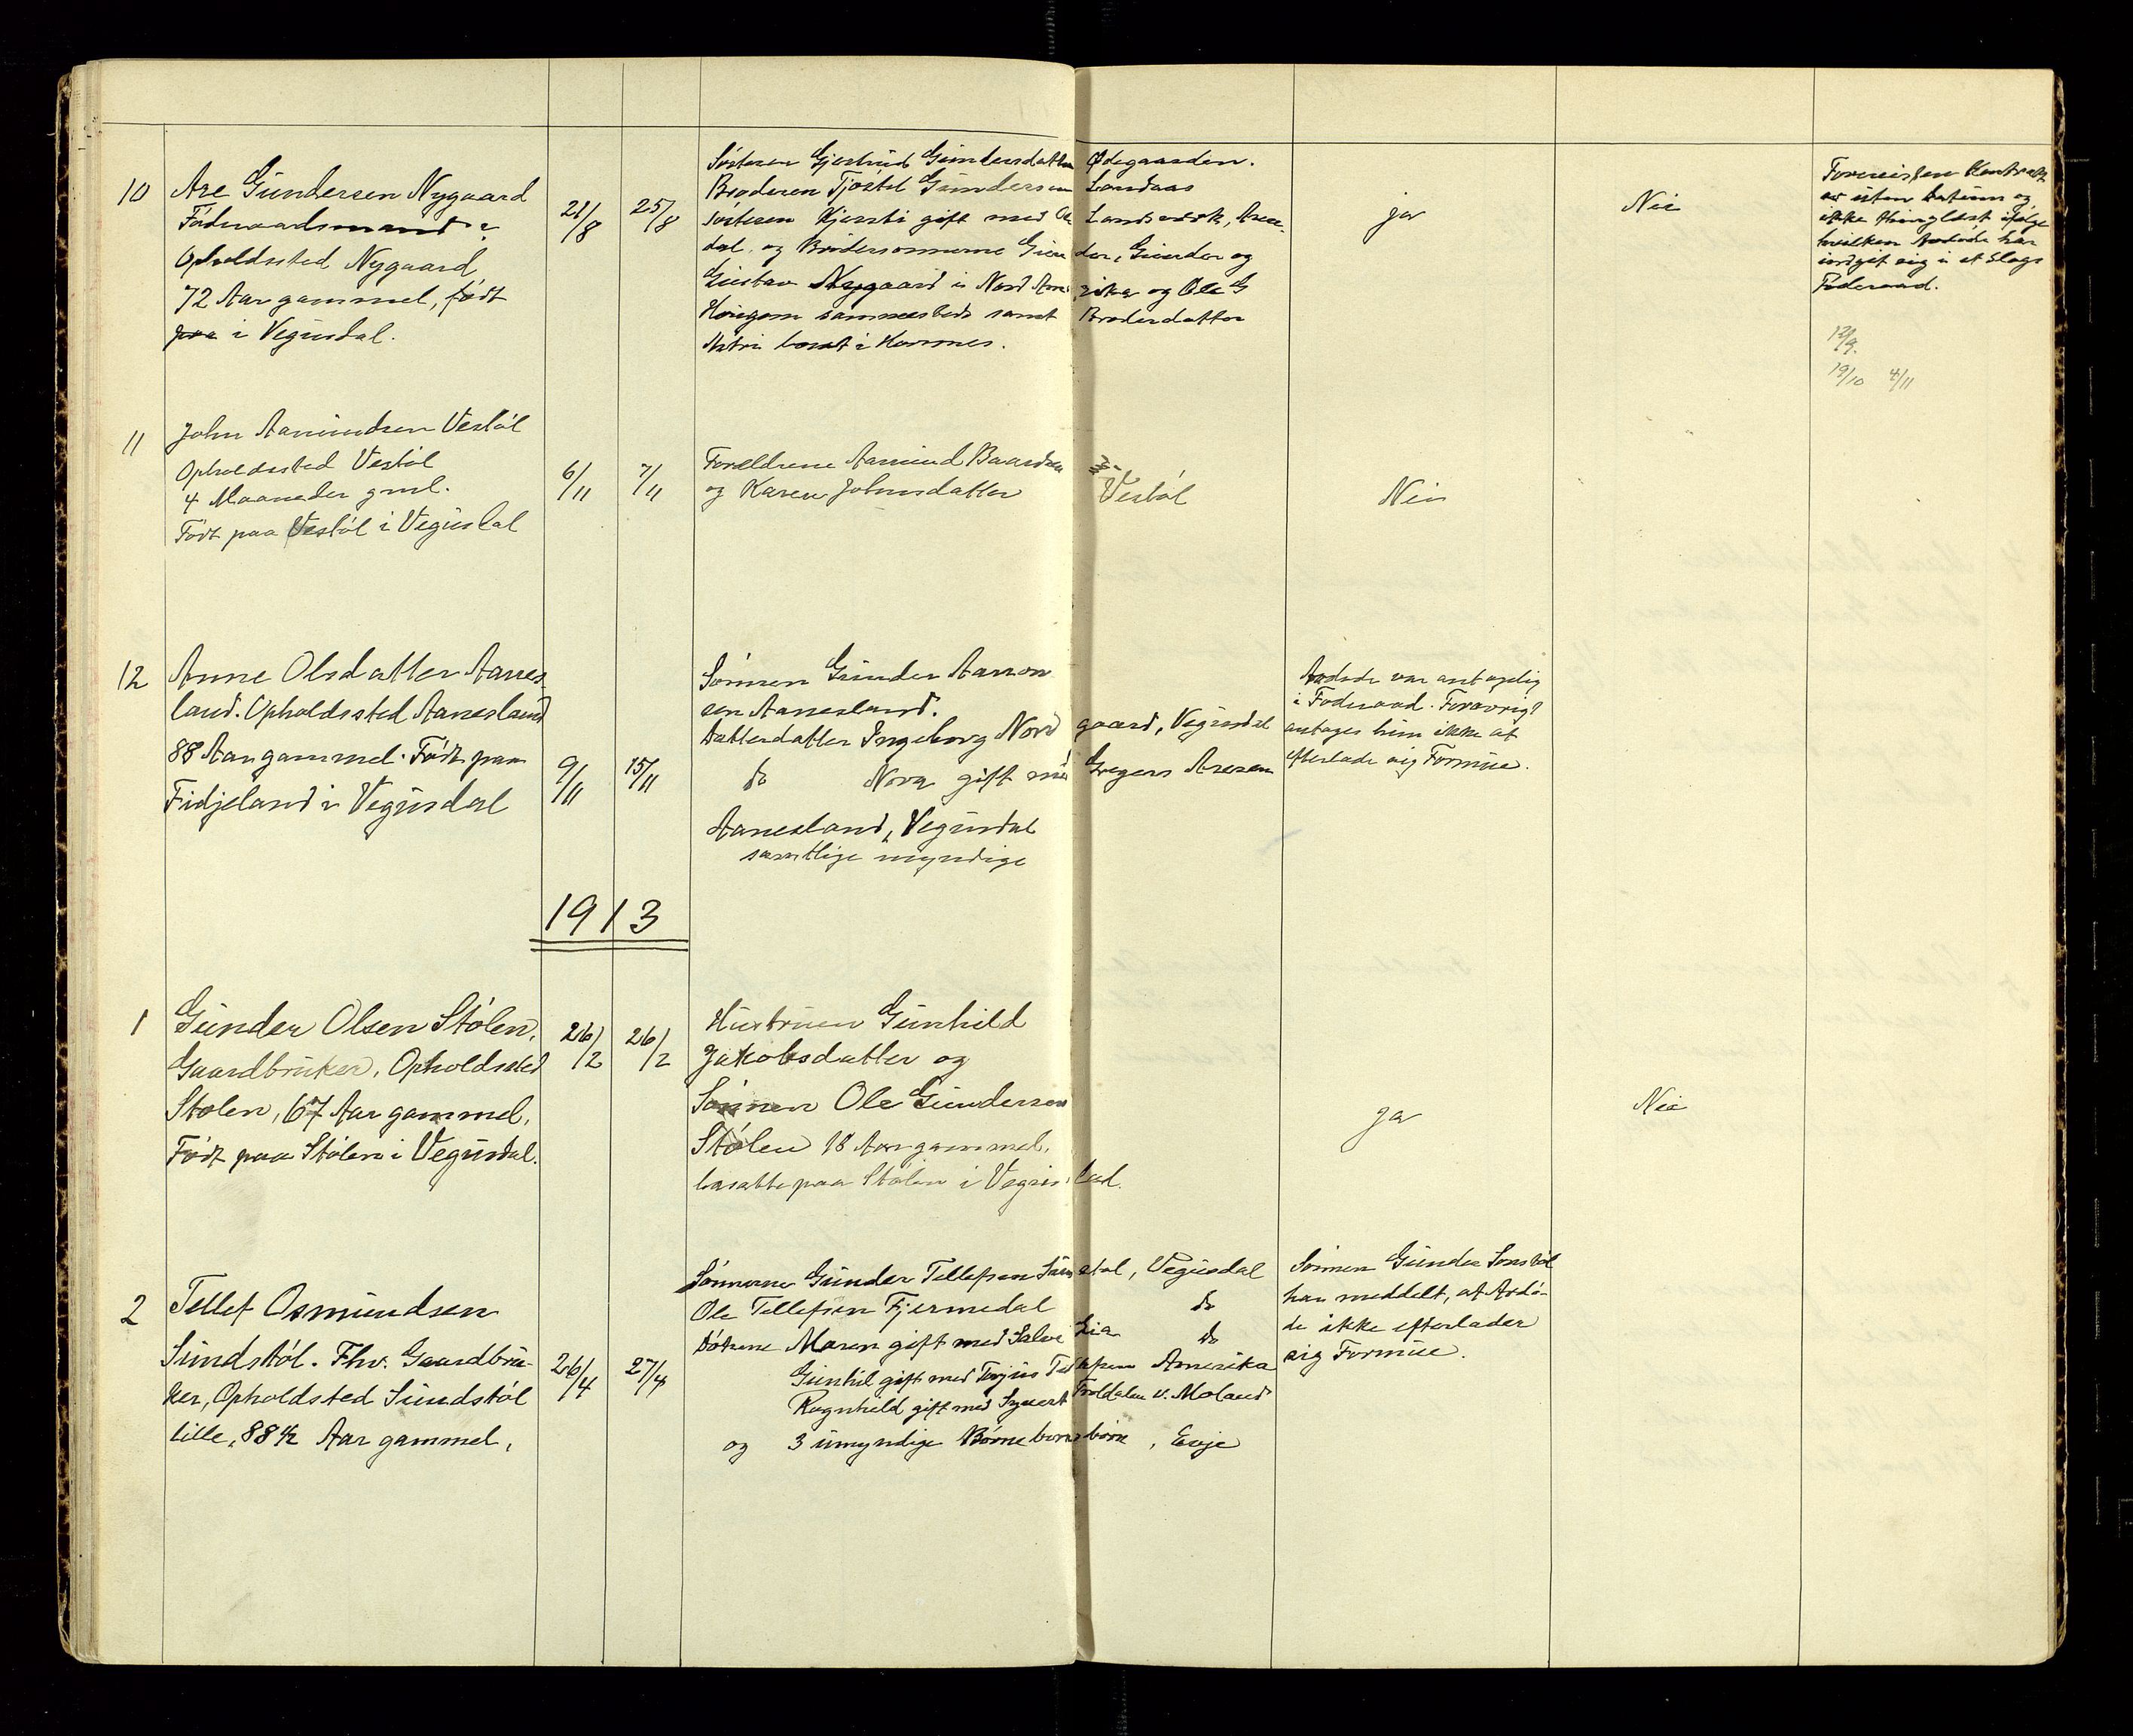 10
Are Gundersen Nygaard
Föderaadsmand
Opholdssted Nygaard
72 Aar gammel, födt
paa i Vegusdal.
21/8
25/8
Söstern Gjertrud Gundersdatter Ødegaarden.
Broderen Tjöstel Gundersen Landaas
Söstern Kjersti gift med Ole Landsverk, Aren-
dal. og Brödersönnerne Gunder, Gunder og
Gustav Nygaard i Nord Amerika og Ole G
sammesteds samt Broderdatter
bosat i Hornnes.
ja
Nei
Foreviste en Kontrakt
er uten Datum og
ikke thinglæst ifølge
hvilken Avdøde har
indgit sig i et Slags
Föderaad.
12/9.
19/10 4/11
11
John Aamundsen Vestöl
Opholdssted Vestöl
4 Maaneder gml.
Födt paa Vestöl i Vegusdal
6/11
7/11
Forældrene Aamund Baardsen
og Karen Johnsdatter Vestöl
Nei
12
Anne Olsdatter Aanes-
land. Opholdssted Aanesland
88 Aar gammel. Födt paa
Fidjeland i Vegusdal
9/11
15/11
Sönnen Gunder Aanon
sen Aanesland.
Datterdatter Ingeborg Nordgaard, Vegusdal
do Nora gift med Gregers Aresen
Aanesland, Vegusdal
samtlige myndige
Avdøde var antagelig
i Föderaad. Forøvrigt
antages hun ikke at
efterlade sig Formue.
1913
1
Gunder Olsen Stölen,
Gaardbruker, Opholdssted
Stölen, 67 Aar gammel,
Födt paa Stölen i Vegusdal.
26/2
26/2
Hustruen Gunhild
Jakobsdatter og
Sönnen Ole Gundersen
Stölen 18 Aar gammel,
bosatte paa Stölen i Vegusdal.
ja
Nei
2
Tellef Osmundsen
Sundstöl. Fhv. Gaardbru-
ker, Opholdsted Sundstöl
lille, 88 1/2 Aar gammel,
26/4
27/4
Sönnerne Gunder Tellefsen Sundstöl, Vegusdal
Ole Tellefsen Fjermedal do
Døtrene Maren gift med Salve Lia do
Gunhil gift med Terjus Tellefsen Amerika
Ragnhild gift med Syvert Troldalen v. Moland
og 3 umyndige Børnebørnsbörn, Evje
Sönnen Gunder Sundstöl
har meddelt, at Avdö-
de ikke efterlader
sig Formue.